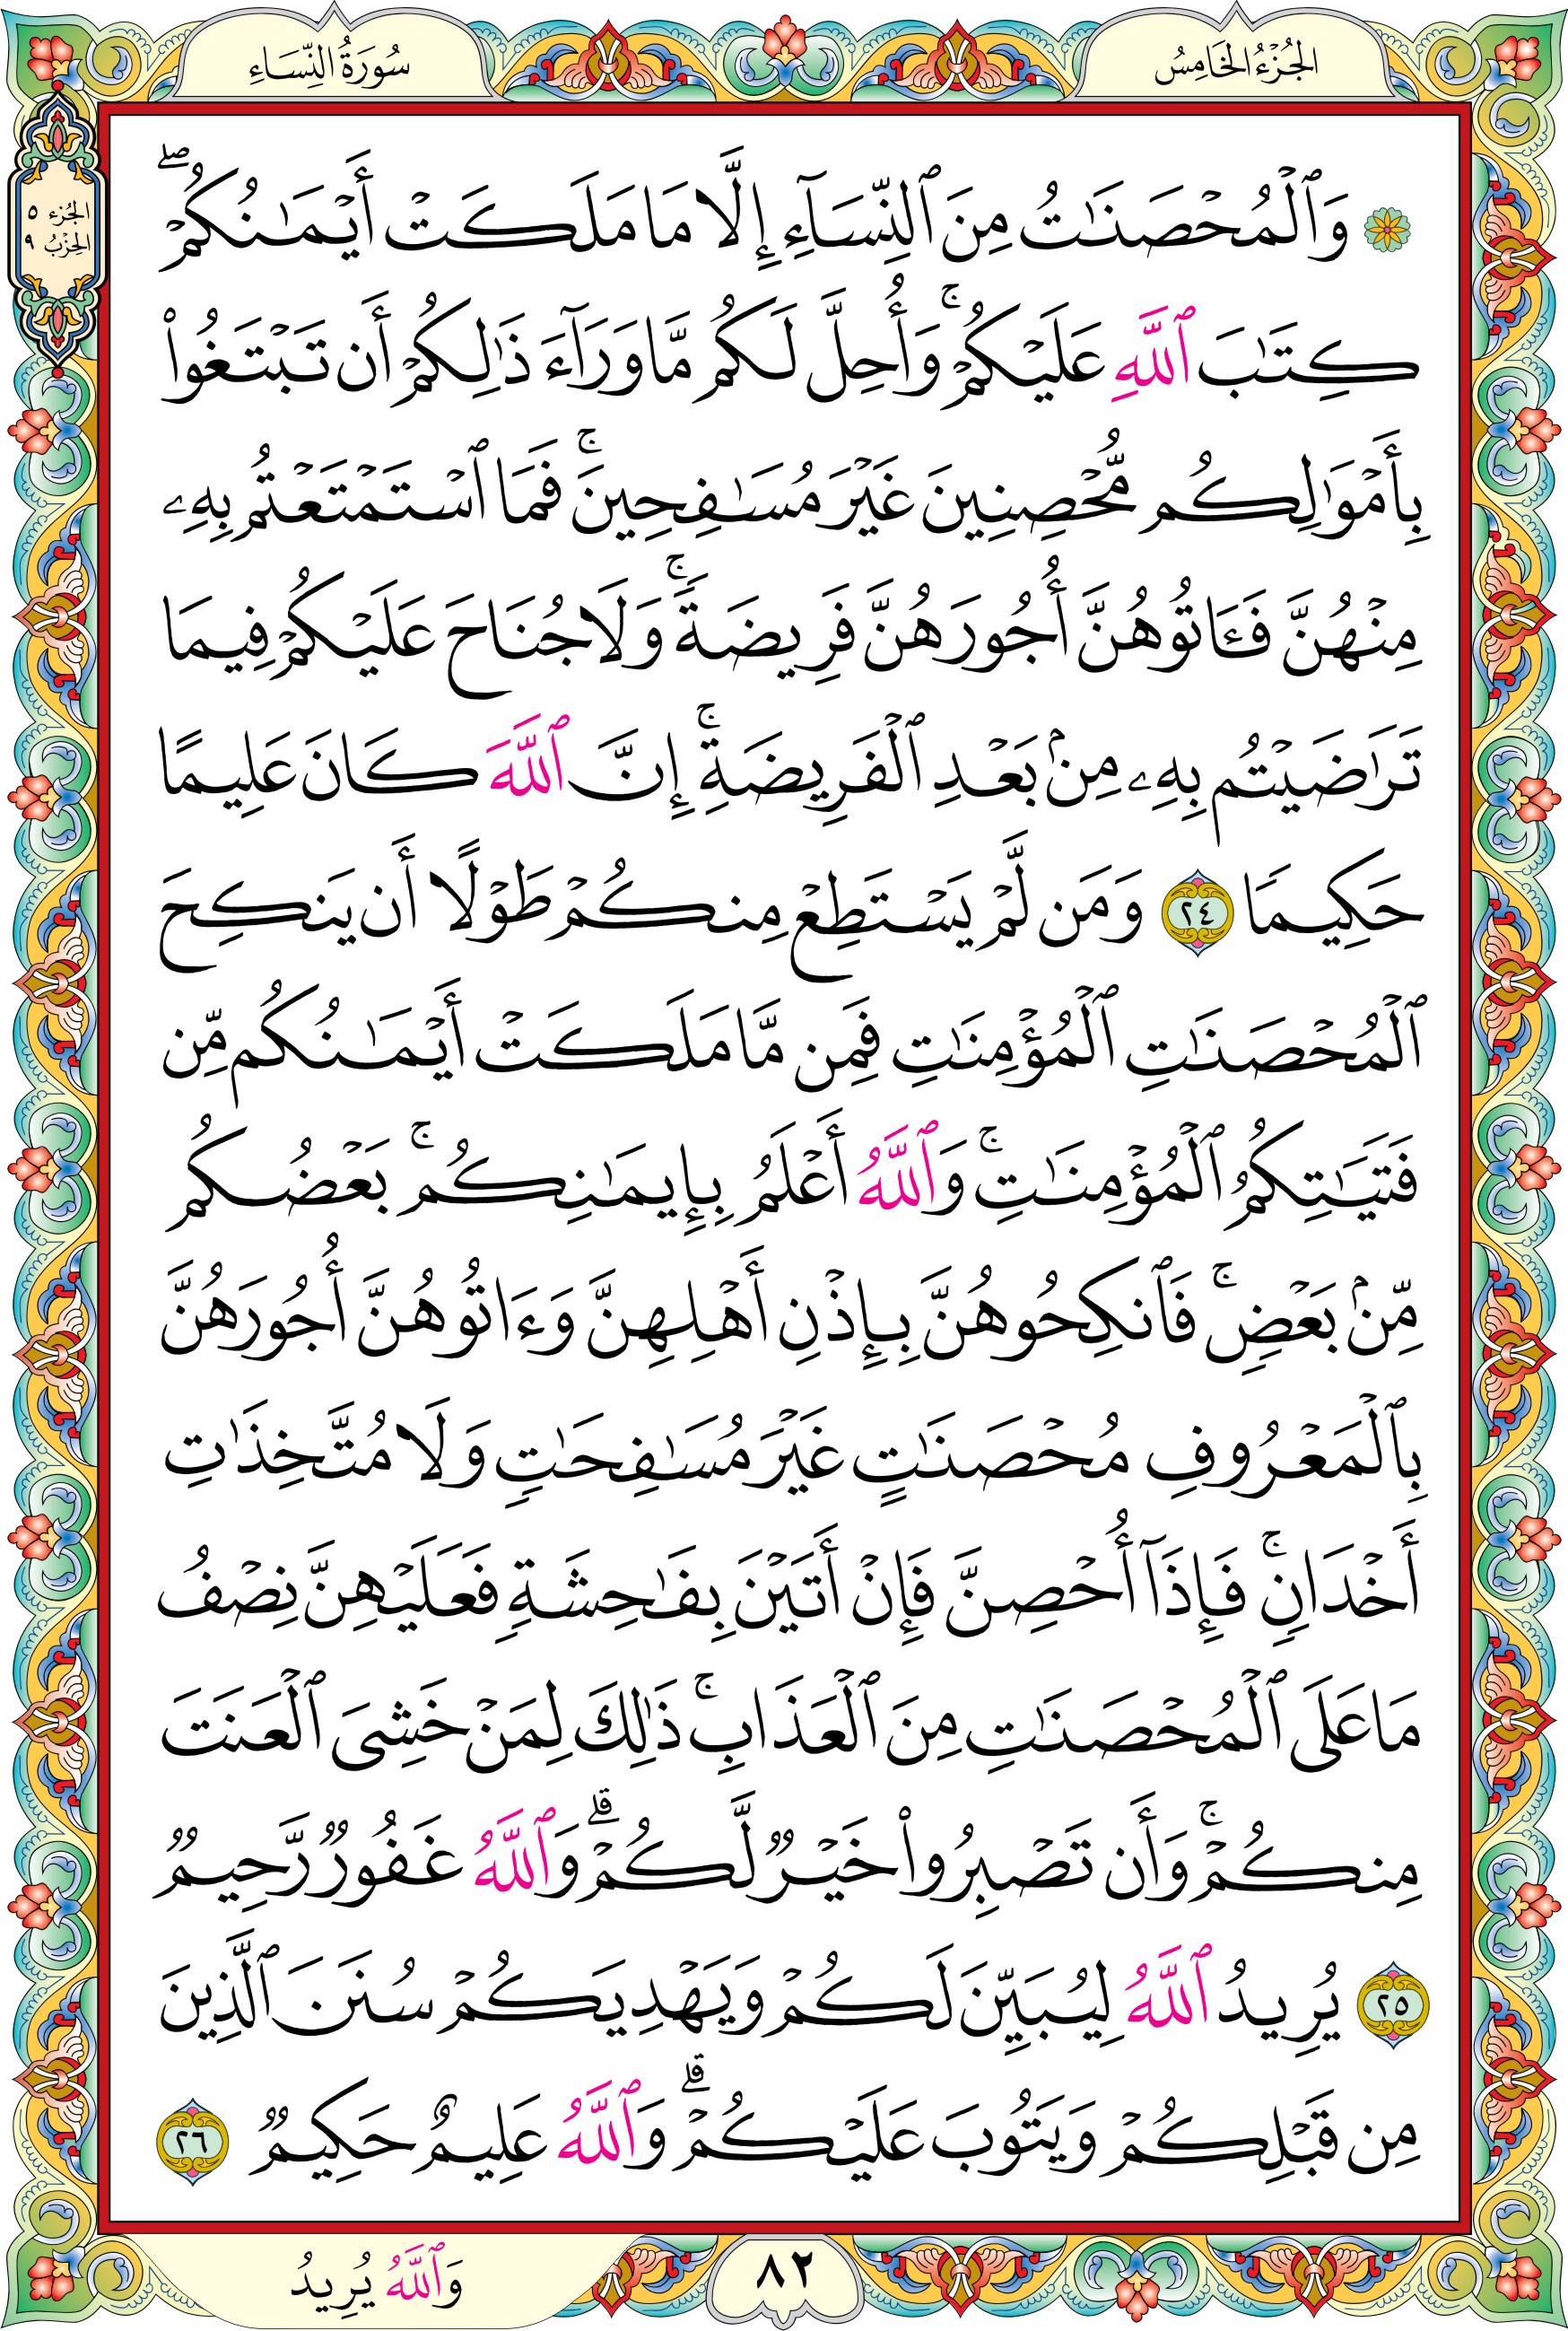 الجُزْءُ الخَامِسُ
سُورَةُ النِّسَاءِ
الجُزء ٥
الحِزْبُ ٩
۞ وَٱلۡمُحۡصَنَٰتُ مِنَ ٱلنِّسَآءِ إِلَّا مَا مَلَكَتۡ أَيۡمَٰنُكُمۡۖ
كِتَٰبَ ٱللَّهِ عَلَيۡكُمۡۚ وَأُحِلَّ لَكُم مَّا وَرَآءَ ذَٰلِكُمۡ أَن تَبۡتَغُواْ
بِأَمۡوَٰلِكُم مُّحۡصِنِينَ غَيۡرَ مُسَٰفِحِينَۚ فَمَا ٱسۡتَمۡتَعۡتُم بِهِۦ
مِنۡهُنَّ فَـَٔاتُوهُنَّ أُجُورَهُنَّ فَرِيضَةٗۚ وَلَا جُنَاحَ عَلَيۡكُمۡ فِيمَا
تَرَٰضَيۡتُم بِهِۦ مِنۢ بَعۡدِ ٱلۡفَرِيضَةِۚ إِنَّ ٱللَّهَ كَانَ عَلِيمًا
حَكِيمٗا ٢٤ وَمَن لَّمۡ يَسۡتَطِعۡ مِنكُمۡ طَوۡلًا أَن يَنكِحَ
ٱلۡمُحۡصَنَٰتِ ٱلۡمُؤۡمِنَٰتِ فَمِن مَّا مَلَكَتۡ أَيۡمَٰنُكُم مِّن
فَتَيَٰتِكُمُ ٱلۡمُؤۡمِنَٰتِۚ وَٱللَّهُ أَعۡلَمُ بِإِيمَٰنِكُمۚ بَعۡضُكُم
مِّنۢ بَعۡضٖۚ فَٱنكِحُوهُنَّ بِإِذۡنِ أَهۡلِهِنَّ وَءَاتُوهُنَّ أُجُورَهُنَّ
بِٱلۡمَعۡرُوفِ مُحۡصَنَٰتٍ غَيۡرَ مُسَٰفِحَٰتٖ وَلَا مُتَّخِذَٰتِ
أَخۡدَانٖۚ فَإِذَآ أُحۡصِنَّ فَإِنۡ أَتَيۡنَ بِفَٰحِشَةٖ فَعَلَيۡهِنَّ نِصۡفُ
مَا عَلَى ٱلۡمُحۡصَنَٰتِ مِنَ ٱلۡعَذَابِۚ ذَٰلِكَ لِمَنۡ خَشِيَ ٱلۡعَنَتَ
مِنكُمۡۚ وَأَن تَصۡبِرُواْ خَيۡرٞ لَّكُمۡۗ وَٱللَّهُ غَفُورٞ رَّحِيمٞ
٢٥ يُرِيدُ ٱللَّهُ لِيُبَيِّنَ لَكُمۡ وَيَهۡدِيَكُمۡ سُنَنَ ٱلَّذِينَ
مِن قَبۡلِكُمۡ وَيَتُوبَ عَلَيۡكُمۡۗ وَٱللَّهُ عَلِيمٌ حَكِيمٞ ٢٦
٨٢
وَٱللَّهُ يُرِيدُ